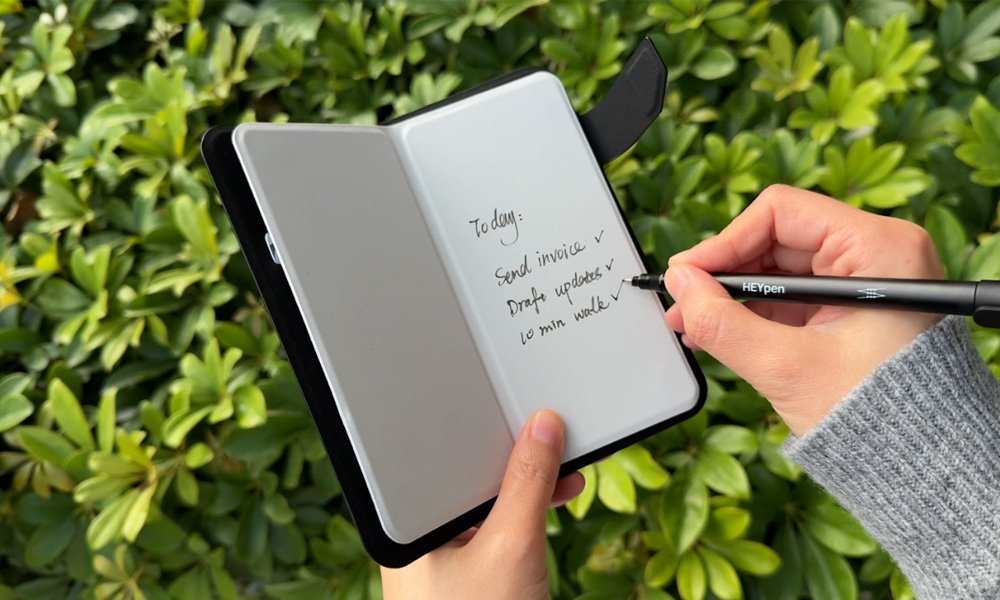 Today:
Send invoice ✓
Draft updates ✓
10 min walk ✓
HEYpen